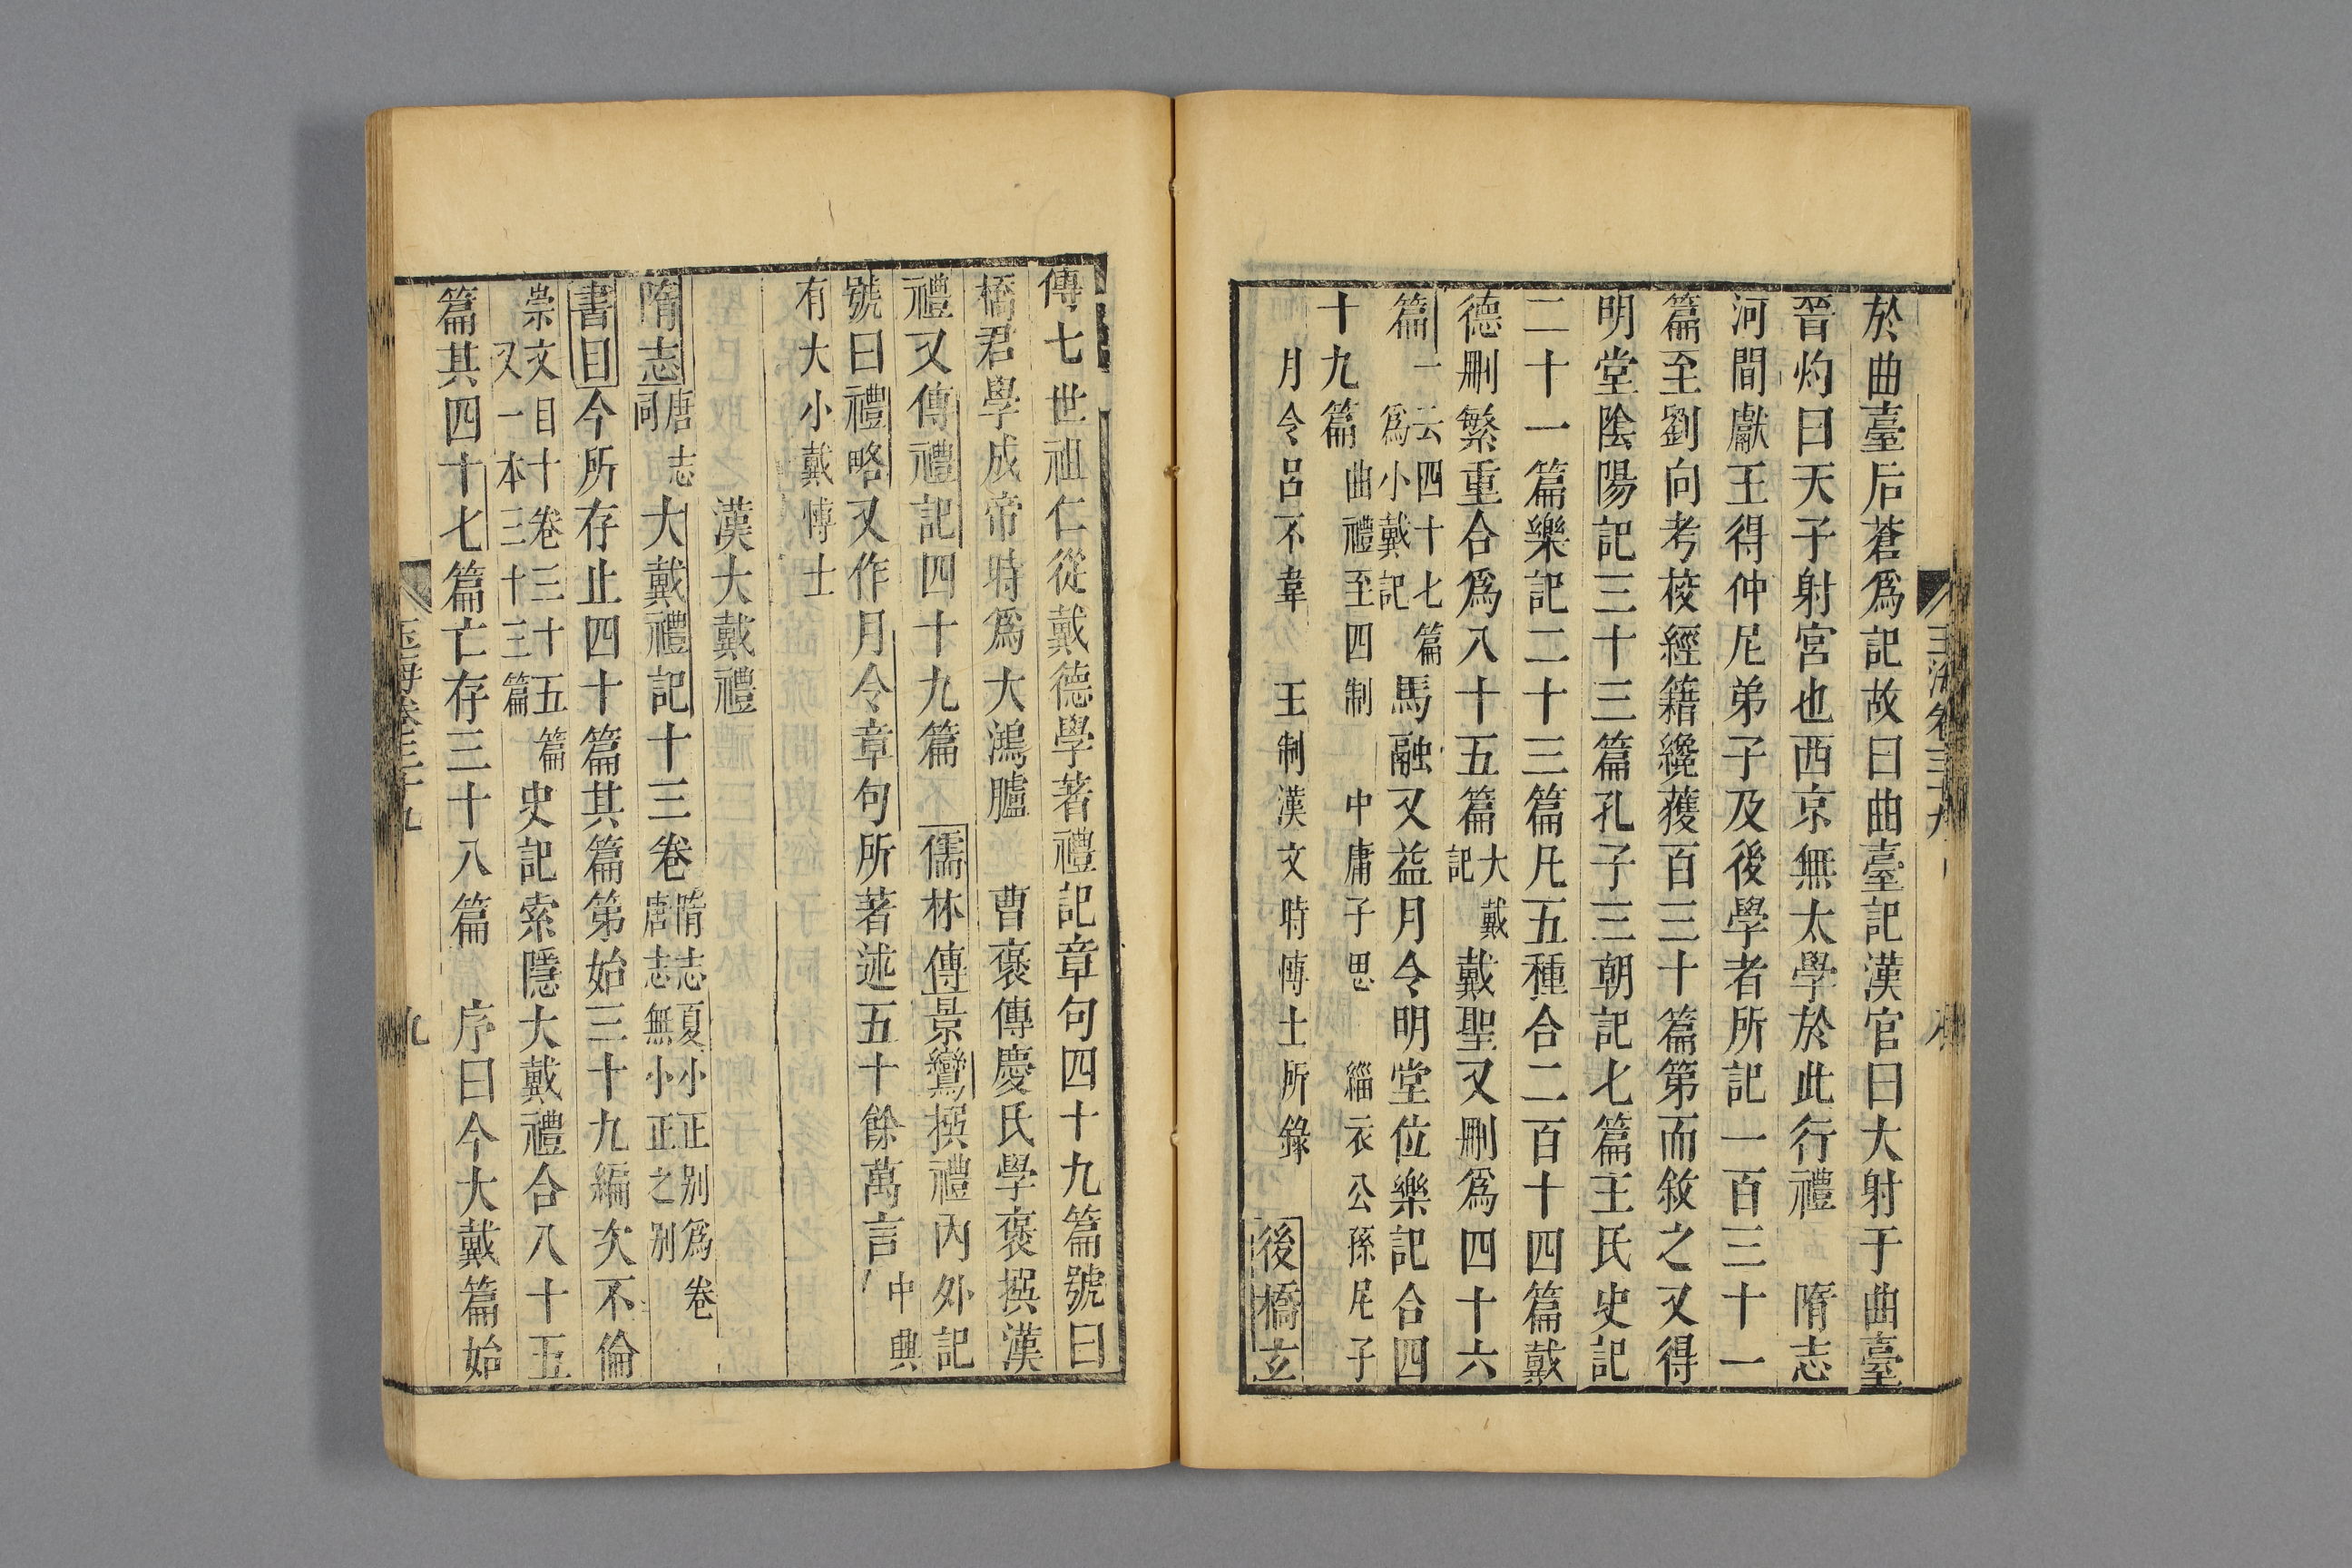 於曲臺后蒼爲記故曰曲臺記漢官曰大射于曲臺
晉灼曰天子射宮也西京無太學於此行禮 隋志
河間獻王得仲尼弟子及後學者所記一百三十一
篇至劉向考校經籍纔獲百三十篇第而敘之又得
明堂陰陽記三十三篇孔子三朝記七篇王氏史記
二十一篇樂記二十三篇凡五種合二百十四篇戴
德刪繁重合爲八十五篇大戴記戴聖又刪爲四十六
篇一云四十七篇爲小戴記馬融又益月令明堂位樂記合四
十九篇曲禮至四制 中庸子思 緇衣公孫尼子
月令呂不韋 王制漢文時博士所錄 後橋玄
傳七世祖仁從戴德學著禮記章句四十九篇號曰
橋君學成帝時爲大鴻臚 曹襃傳慶氏學襃撰漢
禮又傳禮記四十九篇 儒林傳景鸞撰禮內外記
號曰禮略又作月令章句所著述五十餘萬言中興
有大小戴博士
漢大戴禮
隋志唐志同大戴禮記十三卷隋志夏小正別爲卷唐志無小正之別
書目今所存止四十篇其篇第始三十九編次不倫
崇文目十卷三十五篇又一本三十三篇史記索隱大戴禮合八十五
篇其四十七篇亡存三十八篇 序曰今大戴篇始
玉海卷三十九
九